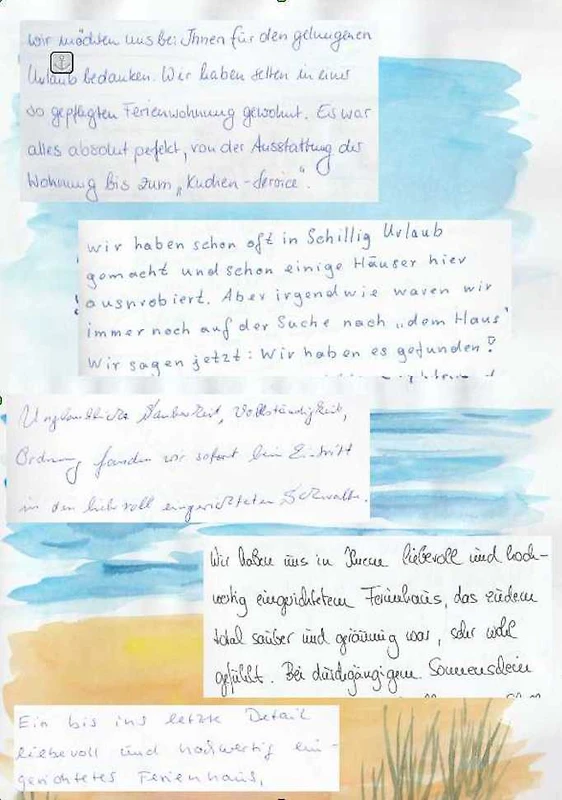 wir möchten uns bei Ihnen für den gelungenen
Urlaub bedanken. Wir haben selten in einer
so gepflegten Ferienwohnung gewohnt. Es war
alles absolut perfekt, von der Ausstattung der
Wohnung bis zum „Kuchen-Service".
wir haben schon oft in Schillig Urlaub
gemacht und schon einige Häuser hier
ausprobiert. Aber irgendwie waren wir
immer noch auf der Suche nach „dem Haus"
Wir sagen jetzt: Wir haben es gefunden!
Unglaubliche Sauberkeit, Vollständigkeit,
Ordnung fanden wir sofort beim Eintritt
in den liebevoll eingerichteten
Wir haben uns in Ihrem liebevoll und hoch-
wertig eingerichtetem Ferienhaus, das zudem
total sauber und geräumig war, sehr wohl
gefühlt. Bei durchgängigem Sonnenschein
Ein bis ins letzte Detail
liebevoll und hochwertig ein-
gerichtetes Ferienhaus,